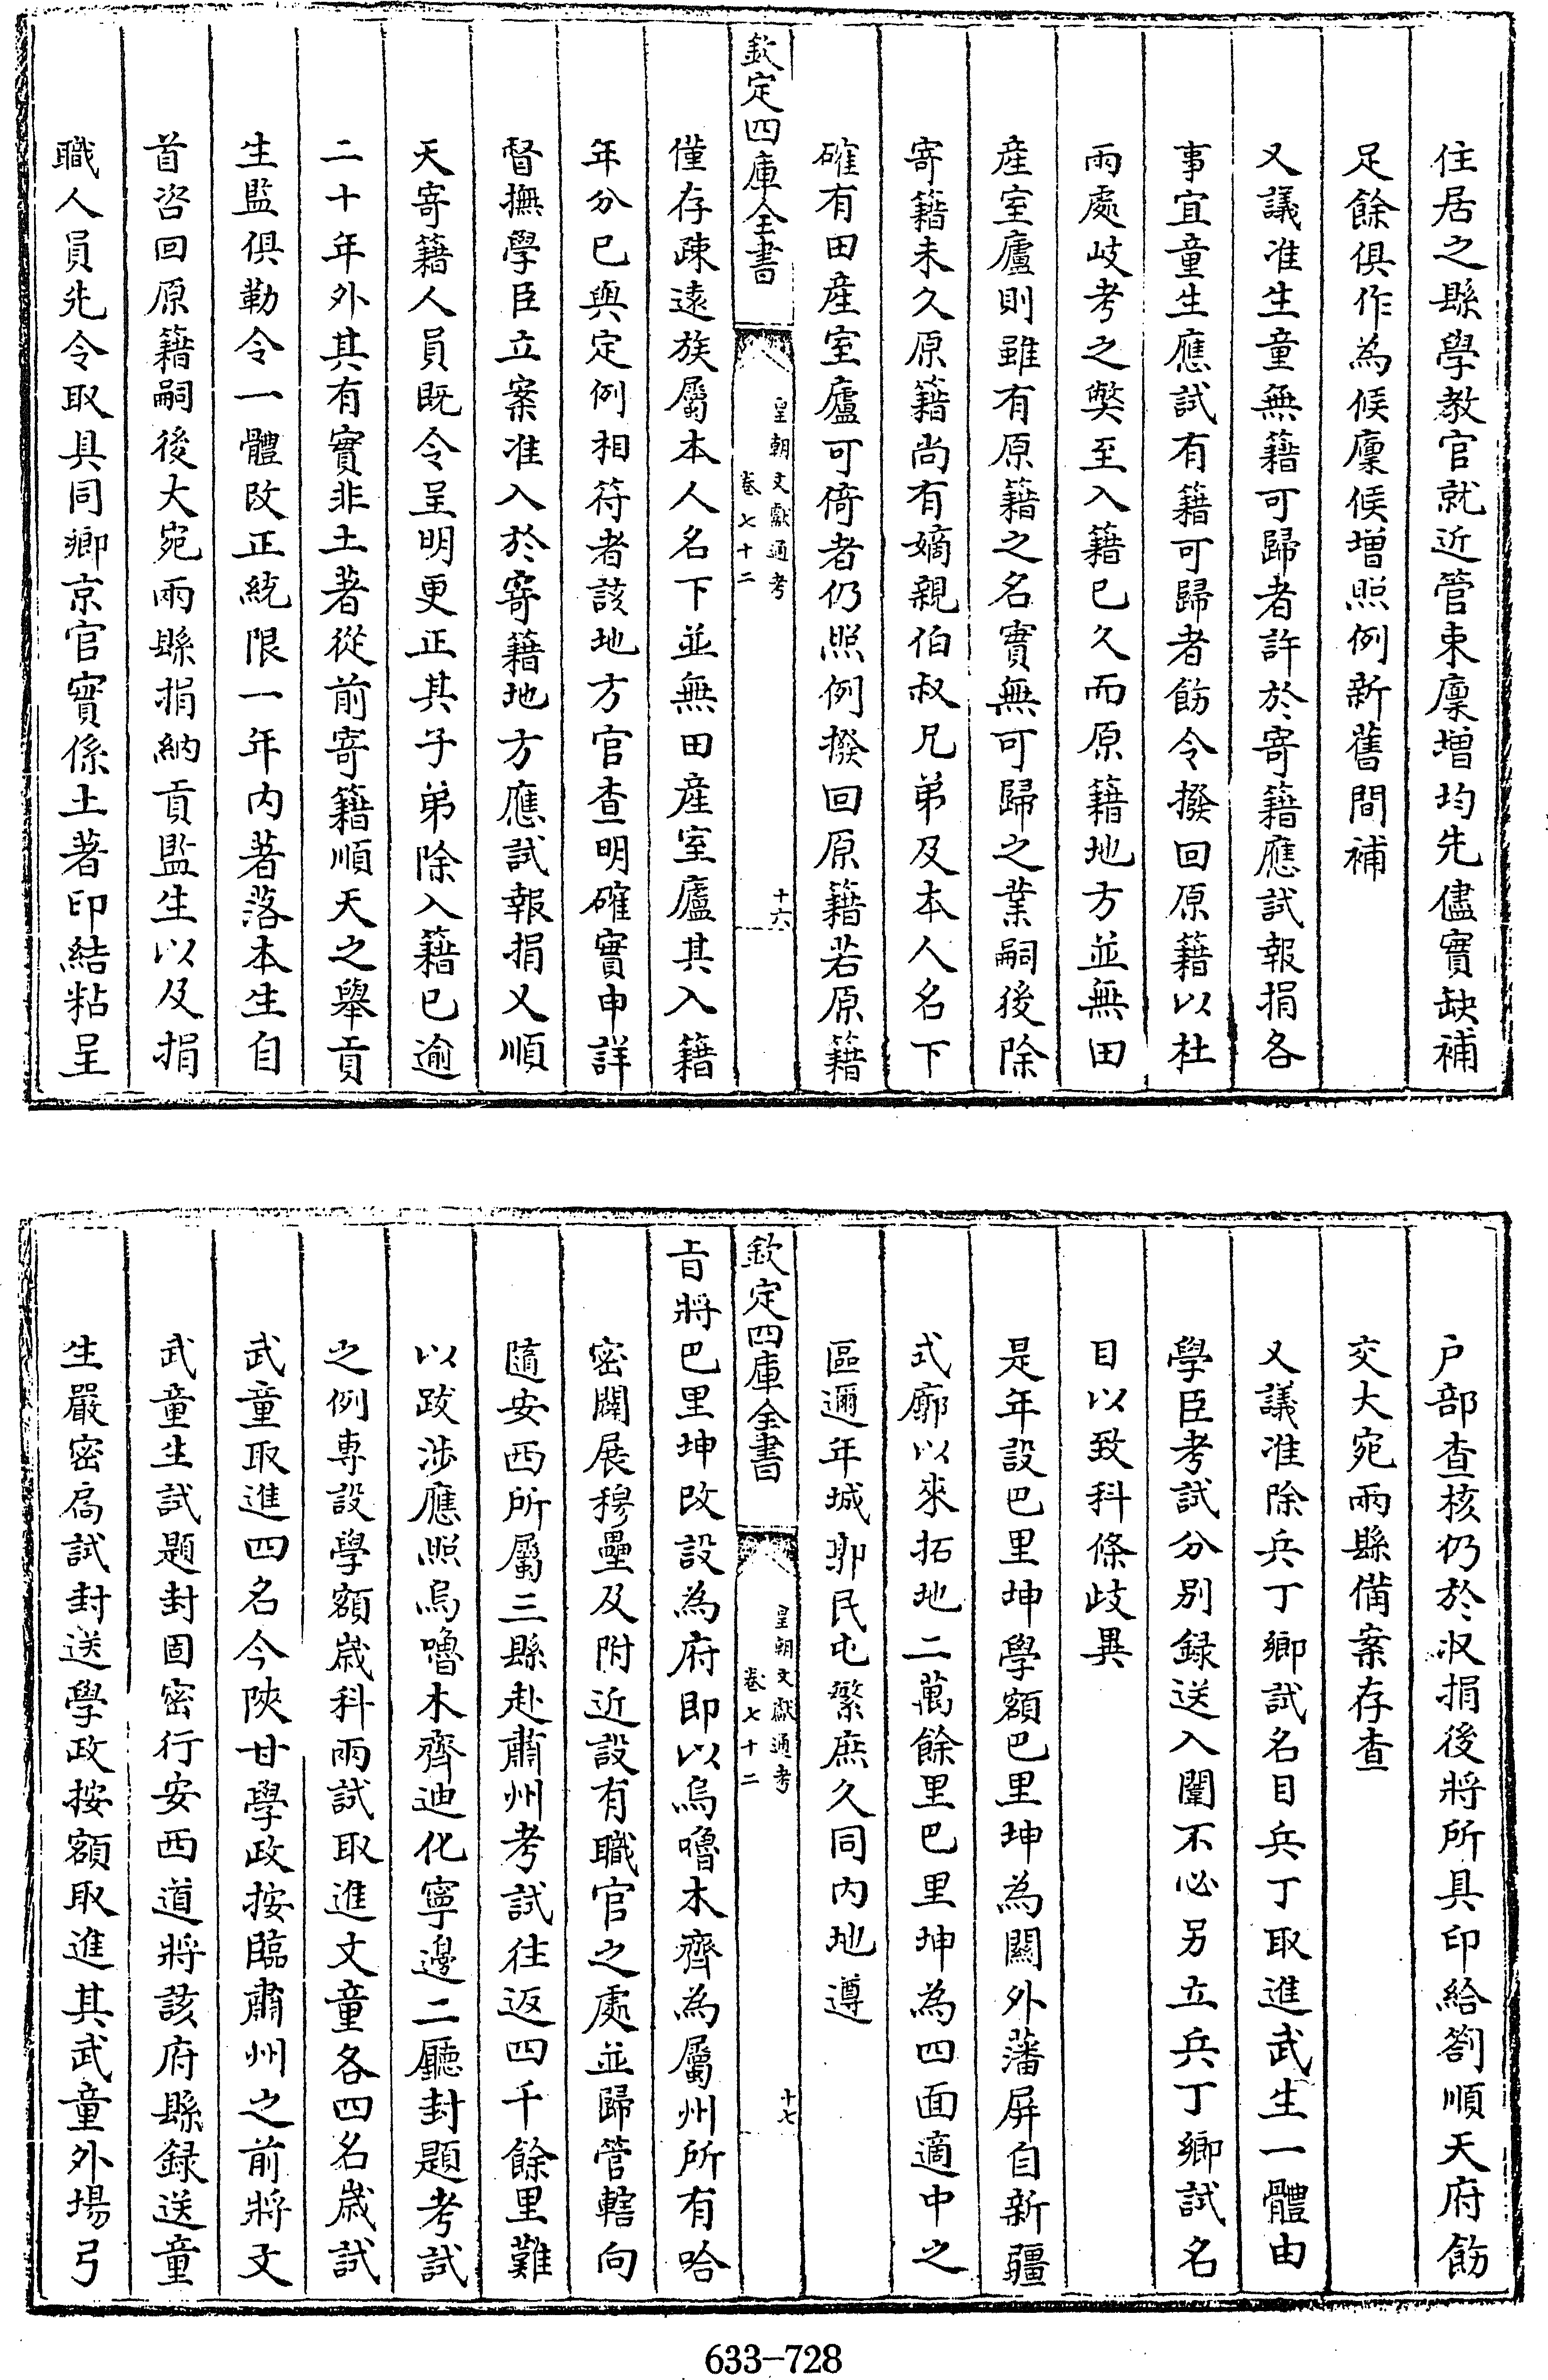 住居之縣學教官就近管束廩增均先儘實缺補
足餘俱作為候廩候增照例新舊間補
又議准生童無籍可歸者許於寄籍應試報捐各
事宜童生應試有籍可歸者飭令撥回原籍以杜
兩處岐考之弊至入籍已久而原籍地方並無田
產室廬則雖有原籍之名實無可歸之業嗣後除
寄籍未久原籍尚有嫡親伯叔兄弟及本人名下
確有田產室廬可倚者仍照例撥回原籍若原籍
欽定四庫全書
皇朝文獻通考
卷七十二
十六
僅存疎遠族屬本人名下並無田產室廬其入籍
年分已與定例相符者該地方官查明確實申詳
督撫學臣立案准入於寄籍地方應試報捐又順
天寄籍人員既令呈明更正其子弟除入籍已逾
二十年外其有實非土著從前寄籍順天之舉貢
生監俱勒令一體改正統限一年內著落本生自
首咨回原籍嗣後大宛兩縣捐納貢監生以及捐
職人員先令取具同鄉京官實係土著印結粘呈
戶部查核仍於收捐後將所具印給劄順天府飭
交大宛兩縣備案存查
又議准除兵丁鄉試名目兵丁取進武生一體由
學臣考試分別録送入闈不必另立兵丁鄉試名
目以致科條歧異
是年設巴里坤學額巴里坤為關外藩屏自新疆
式廓以來拓地二萬餘里巴里坤為四面適中之
區邇年城郭民屯繁庶久同內地遵
欽定四庫全書
皇朝文獻通考
卷七十二
十七
旨將巴里坤改設為府即以烏嚕木齊為屬州所有哈
密闢展穆壘及附近設有職官之處並歸管轄向
隨安西所屬三縣赴肅州考試往返四千餘里難
以跋涉應照烏嚕木齊迪化寧邊二廳封題考試
之例專設學額歲科兩試取進文童各四名歲試
武童取進四名今陝甘學政按臨肅州之前將文
武童生試題封固密行安西道將該府縣録送童
生嚴密扃試封送學政按額取進其武童外場弓
633-728